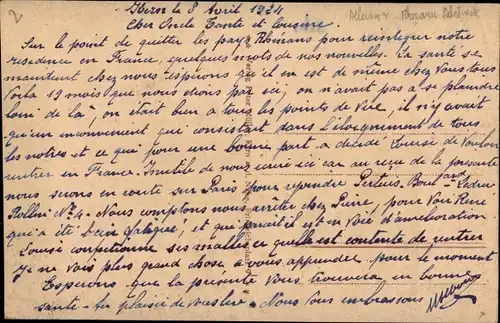 le 8 Avril 1924
Cher Oncle Tante et Cousine
Sur le point de quitter les pays Rhénans pour reintegrer notre
residence en France, quelques mots de nos nouvelles. La sante se
maintient chez nous. Esperons qu'il en est de même chez Vous tous
Voila 19 mois que nous étions par ici, on n'avait pas a se plaindre
loin de là, on était bien a tous les points de Vue, il n'y avait
qu'un inconvenient que consistait dans l'éloignement de tous
les notres et ce qui pour une bonne part a décidé Louise de vouloir
rentrer en France. Inutile de nous ecrire ici car au reçu de la presente
nous serons en route sur Paris pour rejoindre Pertuis. Boul ard Ledru
Rollin No 4. Nous comptons nous arrêter chez Pierre, pour Voir René
qui a été bien fatigué, et que parait il est en Voie d'amelioration
Louise confectionne ses malles et quelle est contente de rentrer
Je ne vois plus grand chose a vous apprendre pour le moment
Esperons que la présente Vous trouvera en bonne
sante. Au plaisir de vous lire. Nous Vous embrassons